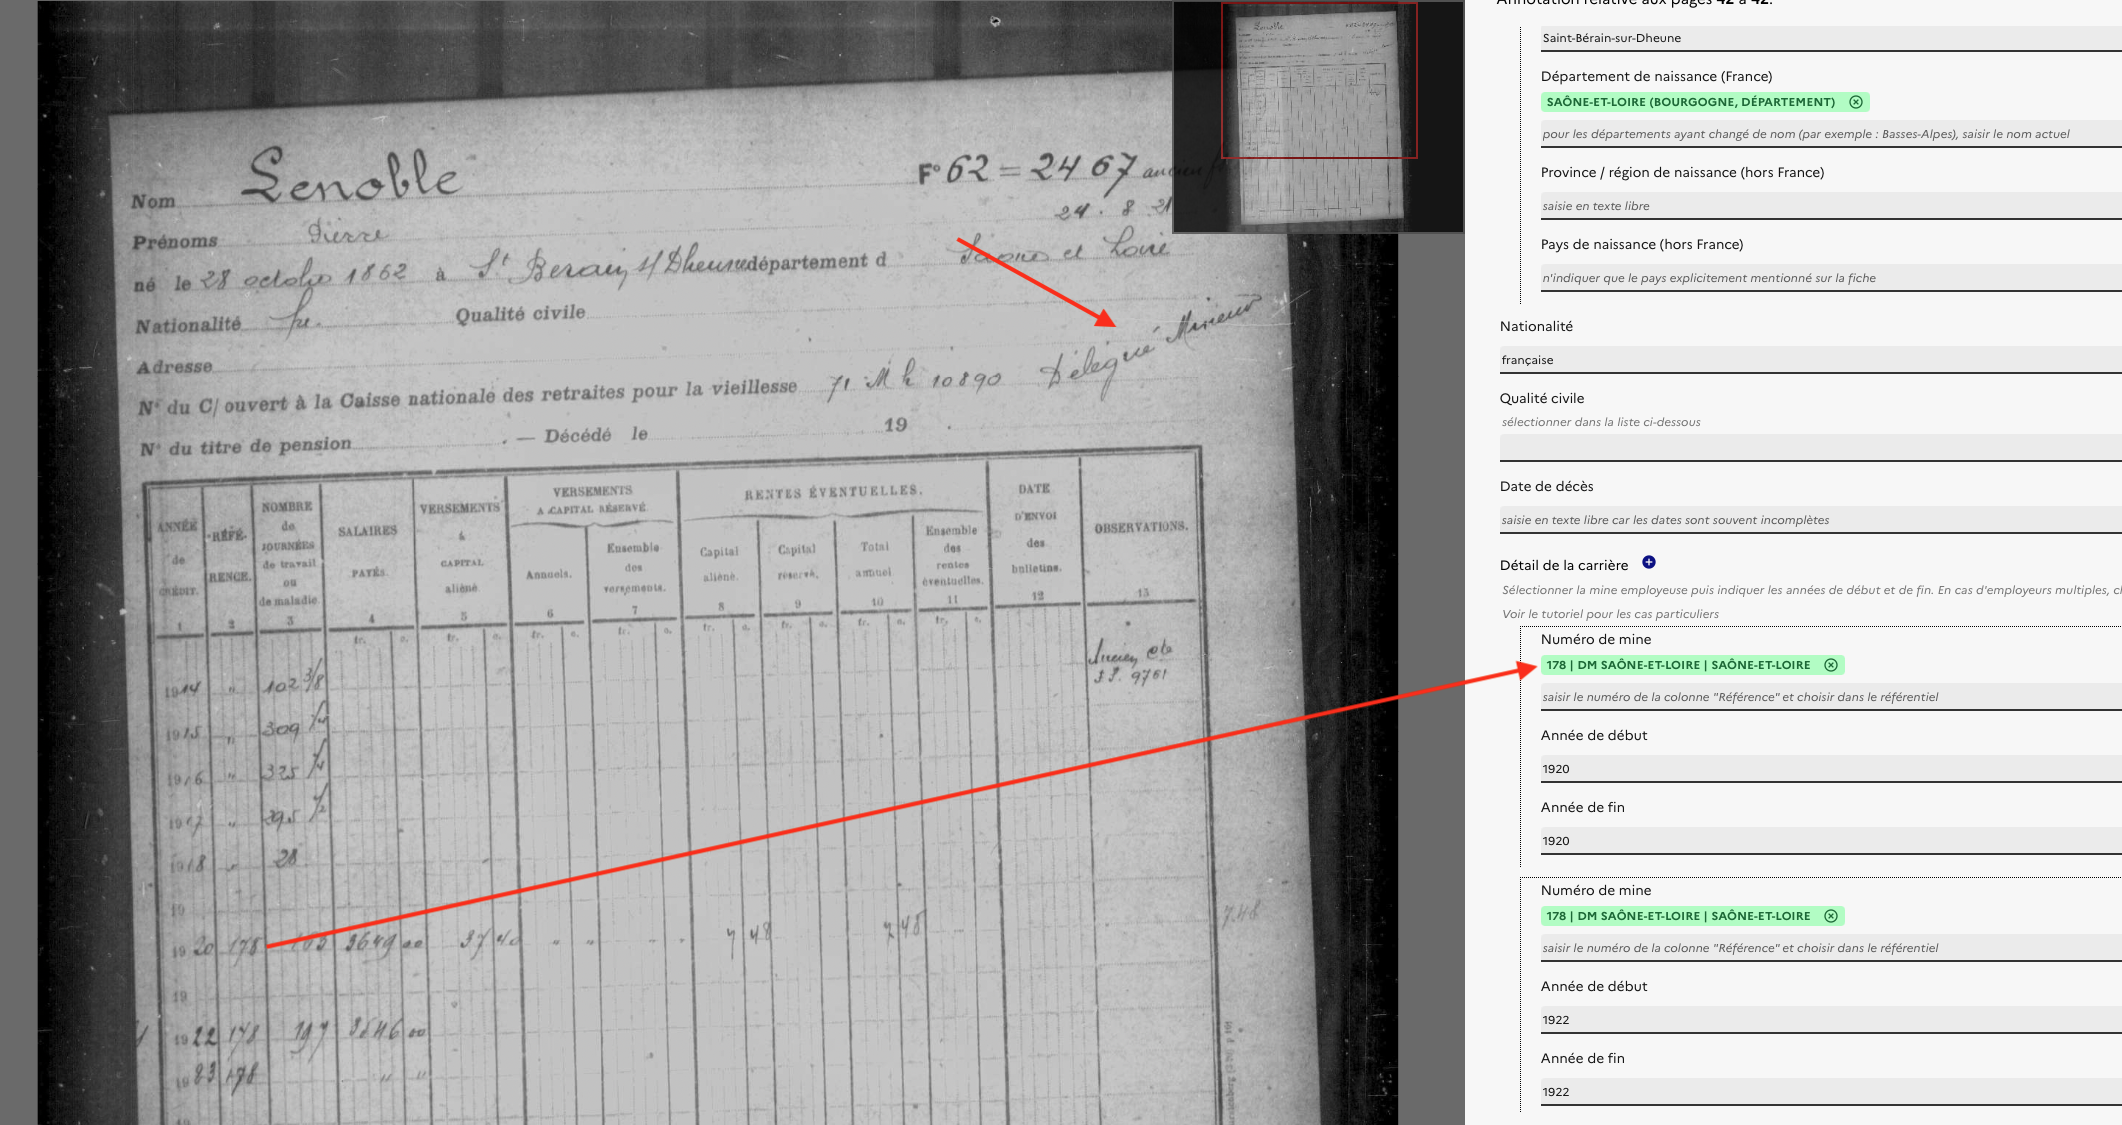 Nom Lenoble F° 62 = 2467 ancien
24. 8 21
Prénoms Pierre
né le 28 octobre 1862 à St Berain s/ Dheune département d Saône et Loire
Nationalité fr. Qualité civile
Adresse
N° du C/ ouvert à la Caisse nationale des retraites pour la vieillesse 71 M h 10890 Délégué Mineur
N° du titre de pension . — Décédé le 19 .
ANNÉE de CRÉDIT. 1
RÉFÉRENCE. 2
NOMBRE de JOURNÉES de travail ou de maladie 3
SALAIRES PAYÉS. 4
VERSEMENTS à CAPITAL aliéné 5
VERSEMENTS A CAPITAL RÉSERVÉ
Annuels. 6
Ensemble des versements. 7
RENTES ÉVENTUELLES.
Capital aliéné. 8
Capital réservé. 9
Total annuel 10
Ensemble des rentes éventuelles. 11
DATE D'ENVOI des bulletins. 12
OBSERVATIONS. 13
fr. c. fr. c. fr. c. fr. c. fr. c. fr. c. fr. c. fr. c.
1914 " 102 3/8 9761
1915 " 309
1916 " 325
1917 "
1918 " 28
19
1920 178 3649 00 37 40 " " 7 48 7 48 748
19
1922 178 197 3646 00
1923 178 " "
Annotation relative aux pages 42 à 42.
Saint-Bérain-sur-Dheune
Département de naissance (France)
SAÔNE-ET-LOIRE (BOURGOGNE, DÉPARTEMENT)
pour les départements ayant changé de nom (par exemple : Basses-Alpes), saisir le nom actuel
Province / région de naissance (hors France)
saisie en texte libre
Pays de naissance (hors France)
n'indiquer que le pays explicitement mentionné sur la fiche
Nationalité
française
Qualité civile
sélectionner dans la liste ci-dessous
Date de décès
saisie en texte libre car les dates sont souvent incomplètes
Détail de la carrière
Sélectionner la mine employeuse puis indiquer les années de début et de fin. En cas d'employeurs multiples,
Voir le tutoriel pour les cas particuliers
Numéro de mine
178 | DM SAÔNE-ET-LOIRE | SAÔNE-ET-LOIRE
saisir le numéro de la colonne "Référence" et choisir dans le référentiel
Année de début
1920
Année de fin
1920
Numéro de mine
178 | DM SAÔNE-ET-LOIRE | SAÔNE-ET-LOIRE
saisir le numéro de la colonne "Référence" et choisir dans le référentiel
Année de début
1922
Année de fin
1922